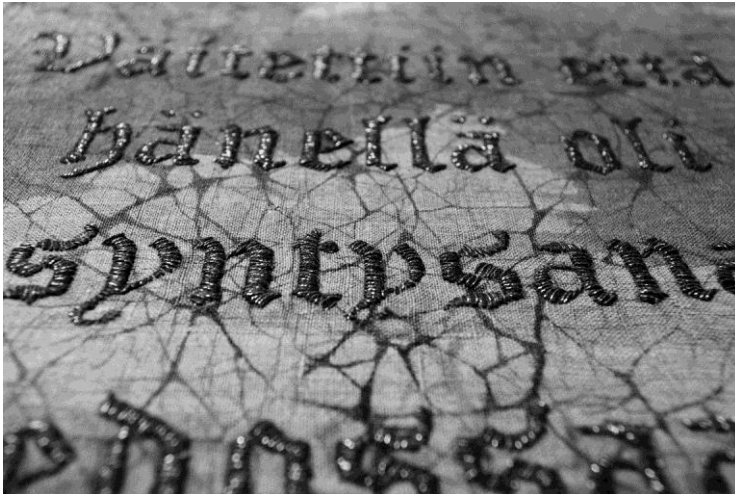 Väitettiin että
hänellä oli
syntysana
edossaa